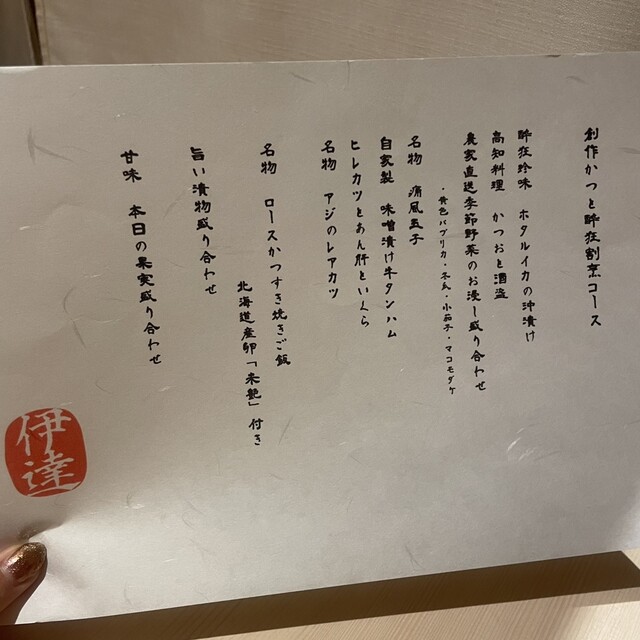 創作かつと酔狂割烹コース
酔狂珍味 ホタルイカの沖漬け
高知料理 かつおと酒盗
農家直送季節野菜のお浸し盛り合わせ
・黄色パプリカ・冬瓜・小茄子・マコモダケ
名物 痛風玉子
自家製 味噌漬け牛タンハム
ヒレカツとあん肝といくら
名物 アジのレアカツ
名物 ロースかつすき焼きご飯
北海道産卵「米艶」付き
旨い漬物盛り合わせ
甘味 本日の果実盛り合わせ
伊達